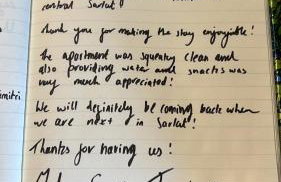 central Sarlat!
Thank you for making the stay enjoyable!
The apartment was squeaky clean and
also providing water and snacks was
very much appreciated!
We will definitely be coming back when
we are next in Sarlat!
Thanks for having us!
imitri